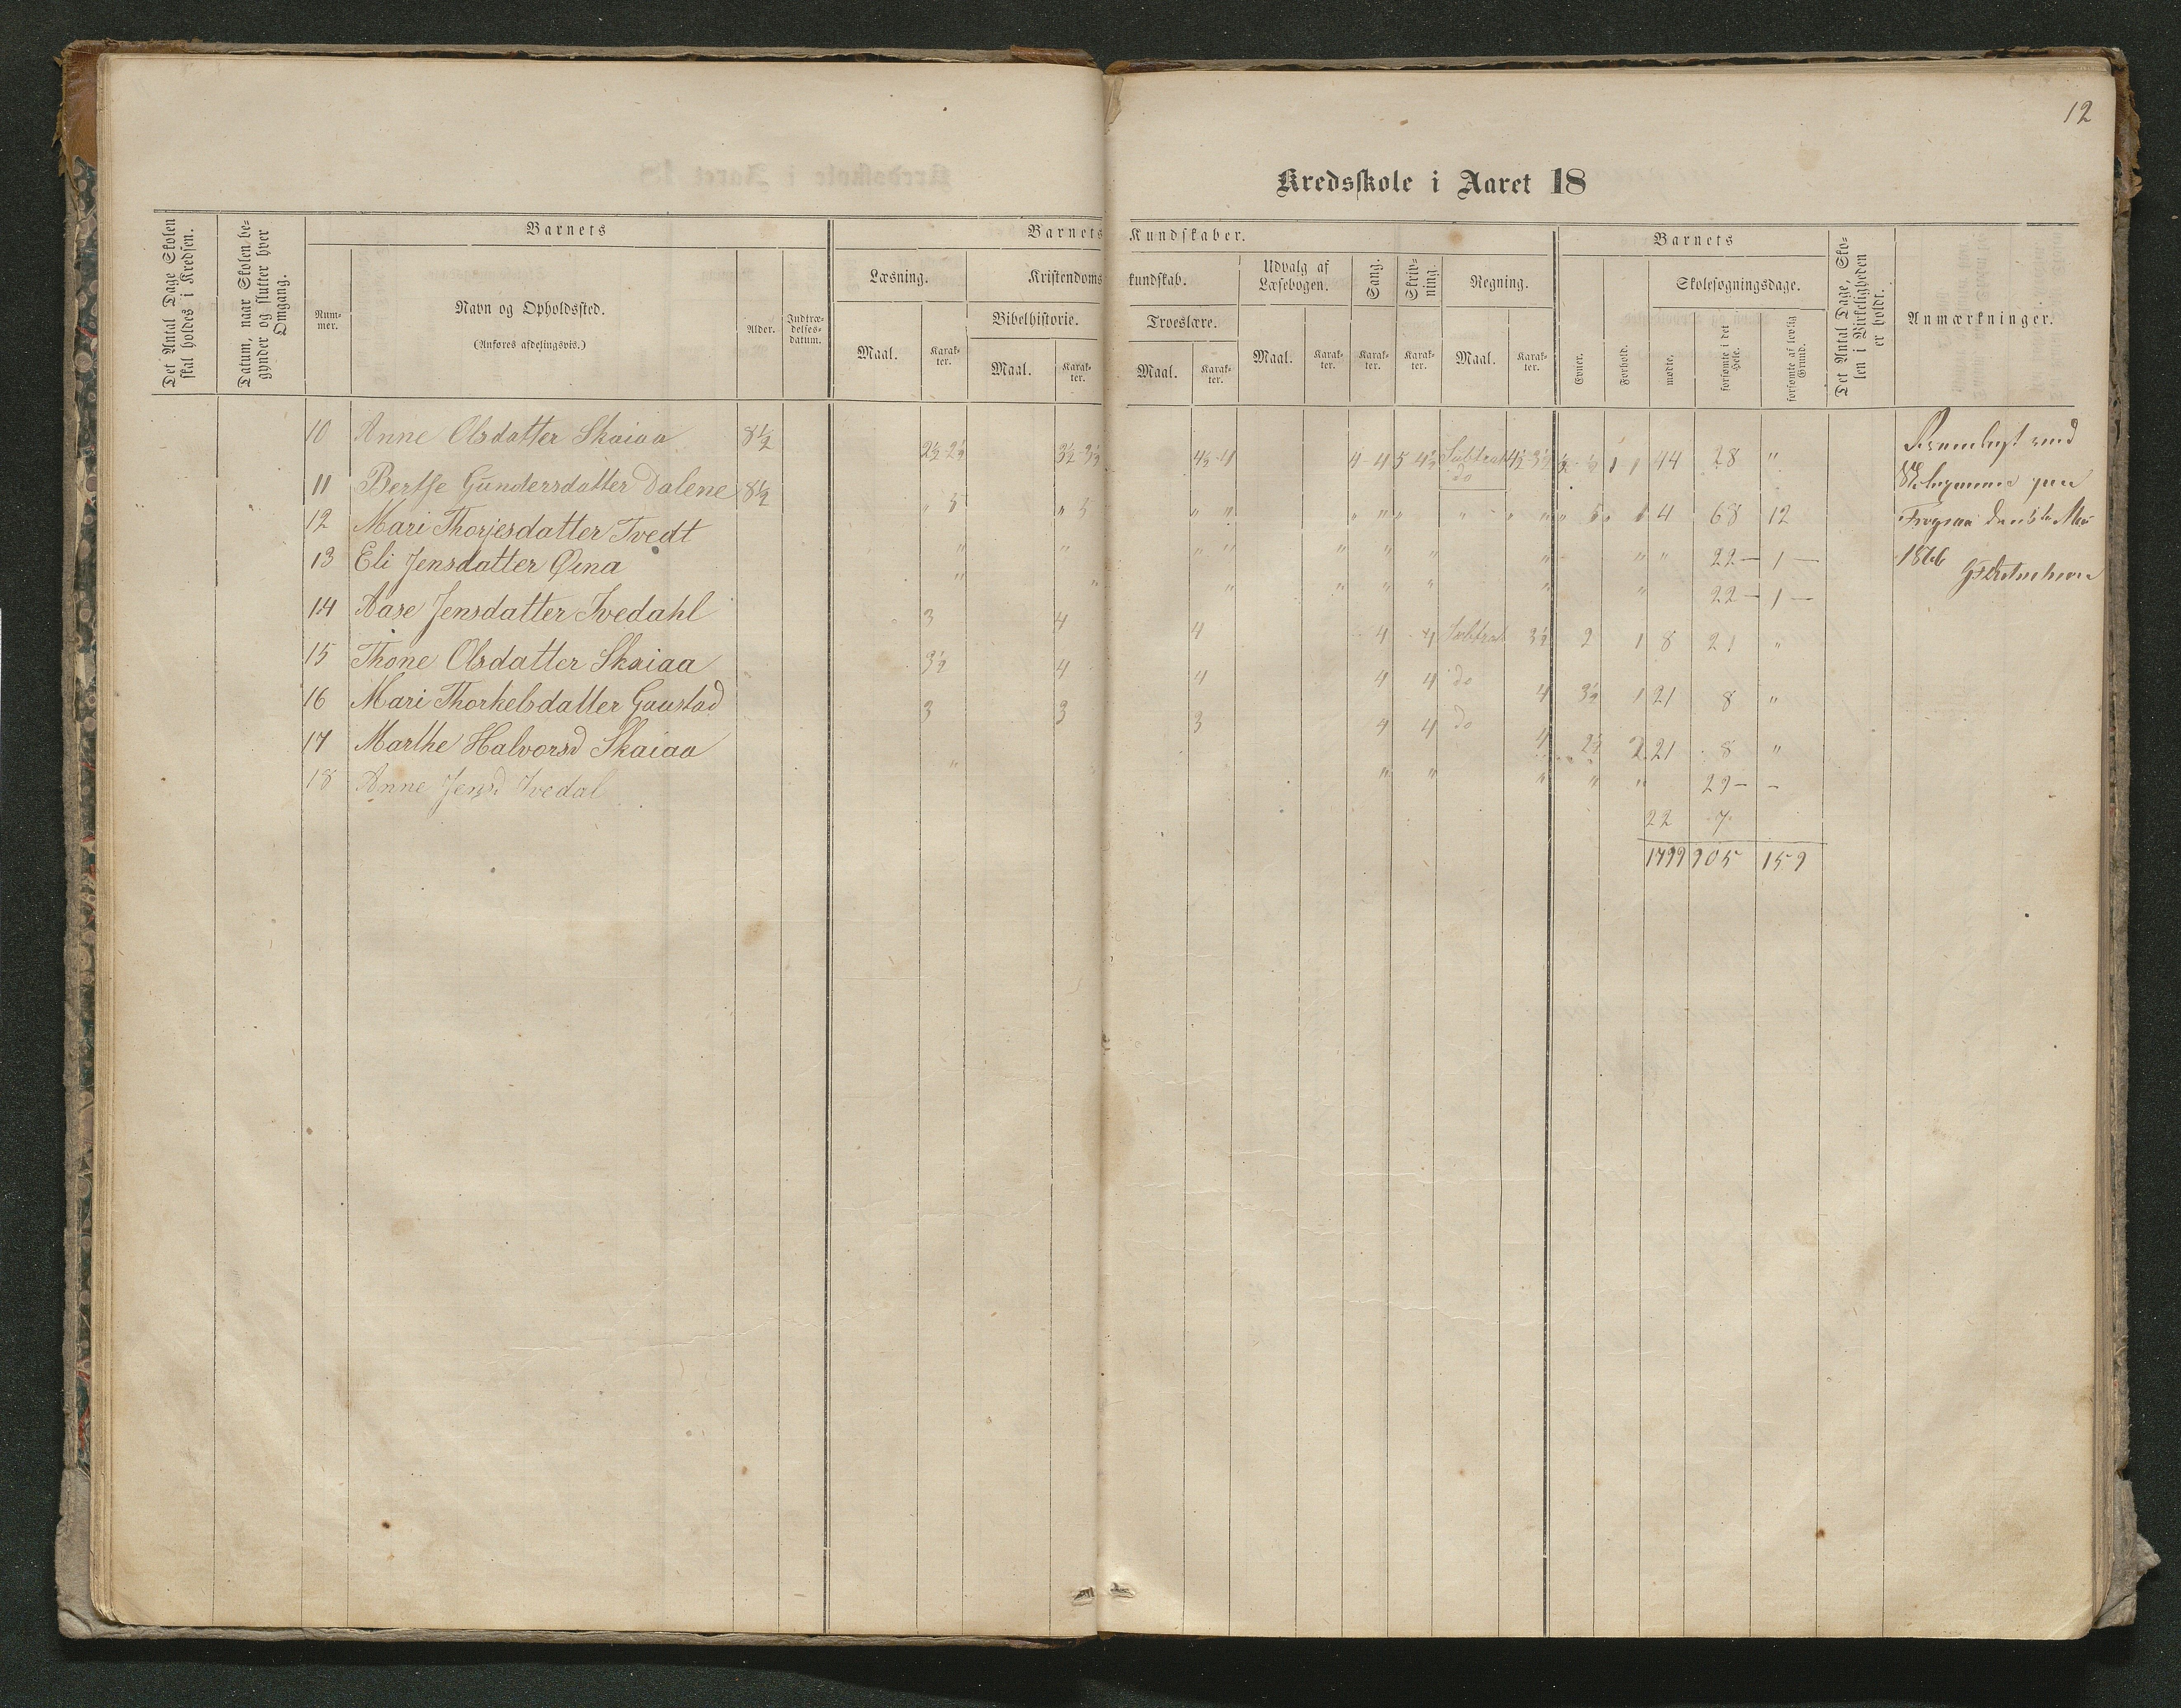 12
Kredsskole i Aaret 18
Det Antal Dage Skolen skal holdes i Kredsen.
Datum, naar Skolen begynder og slutter hver Omgang.
Barnets
Nummer.
Navn og Opholdssted.
(Anføres afdelingsvis.)
Alder.
Indtrædelsesdatum.
Barnets Kundskaber.
Læsning.
Maal.
Karakter.
Kristendomskundskab.
Bibelhistorie.
Maal.
Karakter.
Troeslære.
Maal.
Karakter.
Udvalg af Læsebogen.
Maal.
Karakter.
Sang.
Karakter.
Skrivning.
Karakter.
Regning.
Maal.
Karakter.
Barnets
Evner.
Forhold.
Skolesøgningsdage.
mødte.
forsømte i det Hele.
forsømte af lovlig Grund.
Det Antal Dage, Skolen i Virkeligheden er holdt.
Anmærkninger.
10 Anne Olsdatter Skaiaa 8½ 2½-2½ 3½-3½ 4½-4 4-4 5 4½ Subtrak do 4½-3½ 1 1 44 28 "
11 Berthe Gundersdatter Dalene 8½ " 5 " 5 " " " " " " " " " 5 1 4 68 12
12 Mari Thorjesdatter Tvedt " " " " " " " " " " 22 — 1 —
13 Eli Jensdatter Øina " " " " " " " " 22 — 1 —
14 Aase Jensdatter Ivedahl 3 4 4 4 4 Subtrak 3½ 2 1 8 21 "
15 Thone Olsdatter Skaiaa 3½ 4 4 4 4 do 4 3½ 1 21 8 "
16 Mari Thorkelsdatter Gaustad 3 3 3 4 4 do 4 2½ 2 21 8 "
17 Marthe Halvorsd Skaiaa " " " " " " 29 — –
18 Anne Jensd Ivedal 22 7
1799 905 159
1876